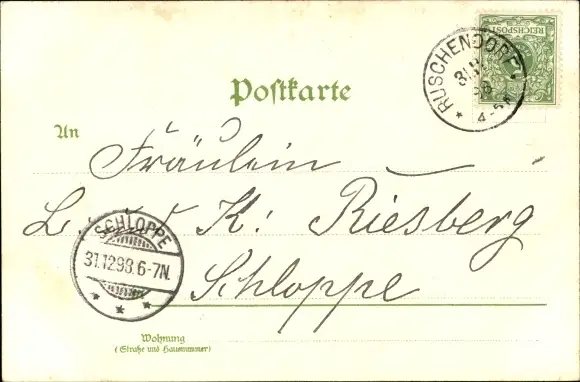 REICHSPOST
RUSCHENDORF
31.12
98
4-5N
Postkarte
An
Fräulein
L. u. K: Riesberg
Schloppe
SCHLOPPE
31.12.98.6-7N.
Wohnung
(Straße und Hausnummer)